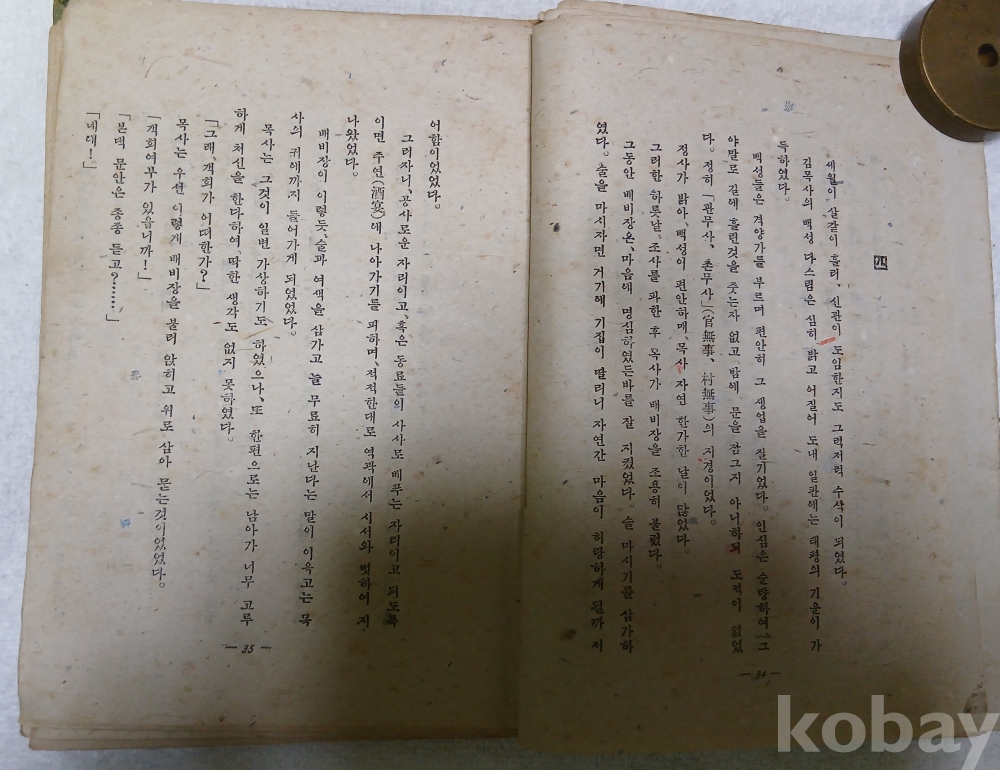 四
세월이 살같이 흘러, 신관이 도임한지도 그럭저럭 수삭이 되였다.
김목사의 백성 다스림은 심히 밝고 어질어 도내 일판에는 태평의 기운이 가
득하였다.
백성들은 격양가를 부르며 편안히 그 생업을 질기었다. 인심은 순량하여, 그
야말로 길에 흘린것을 줏는자 없고 밤에 문을 잠그지 아니하되 도적이 없었
다. 정히 「관무사、촌무사」(官無事、村無事)의 지경이었다.
정사가 밝아、백성이 편안하매、목사 자연 한가한 날이 많었다.
그러한 하룻날、조사를 파한 후 목사가 배비장을 조용히 불렀다.
그동안 배비장은、마음에 명심하였든바를 잘 지켰었다. 술 마시기를 삼가하
였다. 술을 마시자면 거기에 기집이 딸리니 자연간 마음이 허랑하게 될까 저
— 34 —
어함이었었다.
그러자니、공사로운 자리이고、혹은 동료들의 사사로 베푸는 자리이고 되도록
이면 주연(酒宴)에 나아가기를 피하며、적적한대로 역곽에서 시서와 벗하여 지
나왔었다.
배비장이 이렇듯、술과 여색을 삼가고 늘 무료히 지난다는 말이 이윽고는 목
사의 귀에까지 들어가게 되었었다.
목사는 그것이 일변 가상하기도 하였으나、또 한편으로는 남아가 너무 고루
하게 처신을 한다하여、딱한 생각도 없지 못하였다.
「그래、객회가 어떠한가?」
목사는 우선 이렇게 배비장을 불러 앉히고 위로 삼아 묻는것이었었다.
「객회여부가 있읍니까!」
「본댁 문안은 종종 듣고?……」
「네네!」
— 35 —
kobay